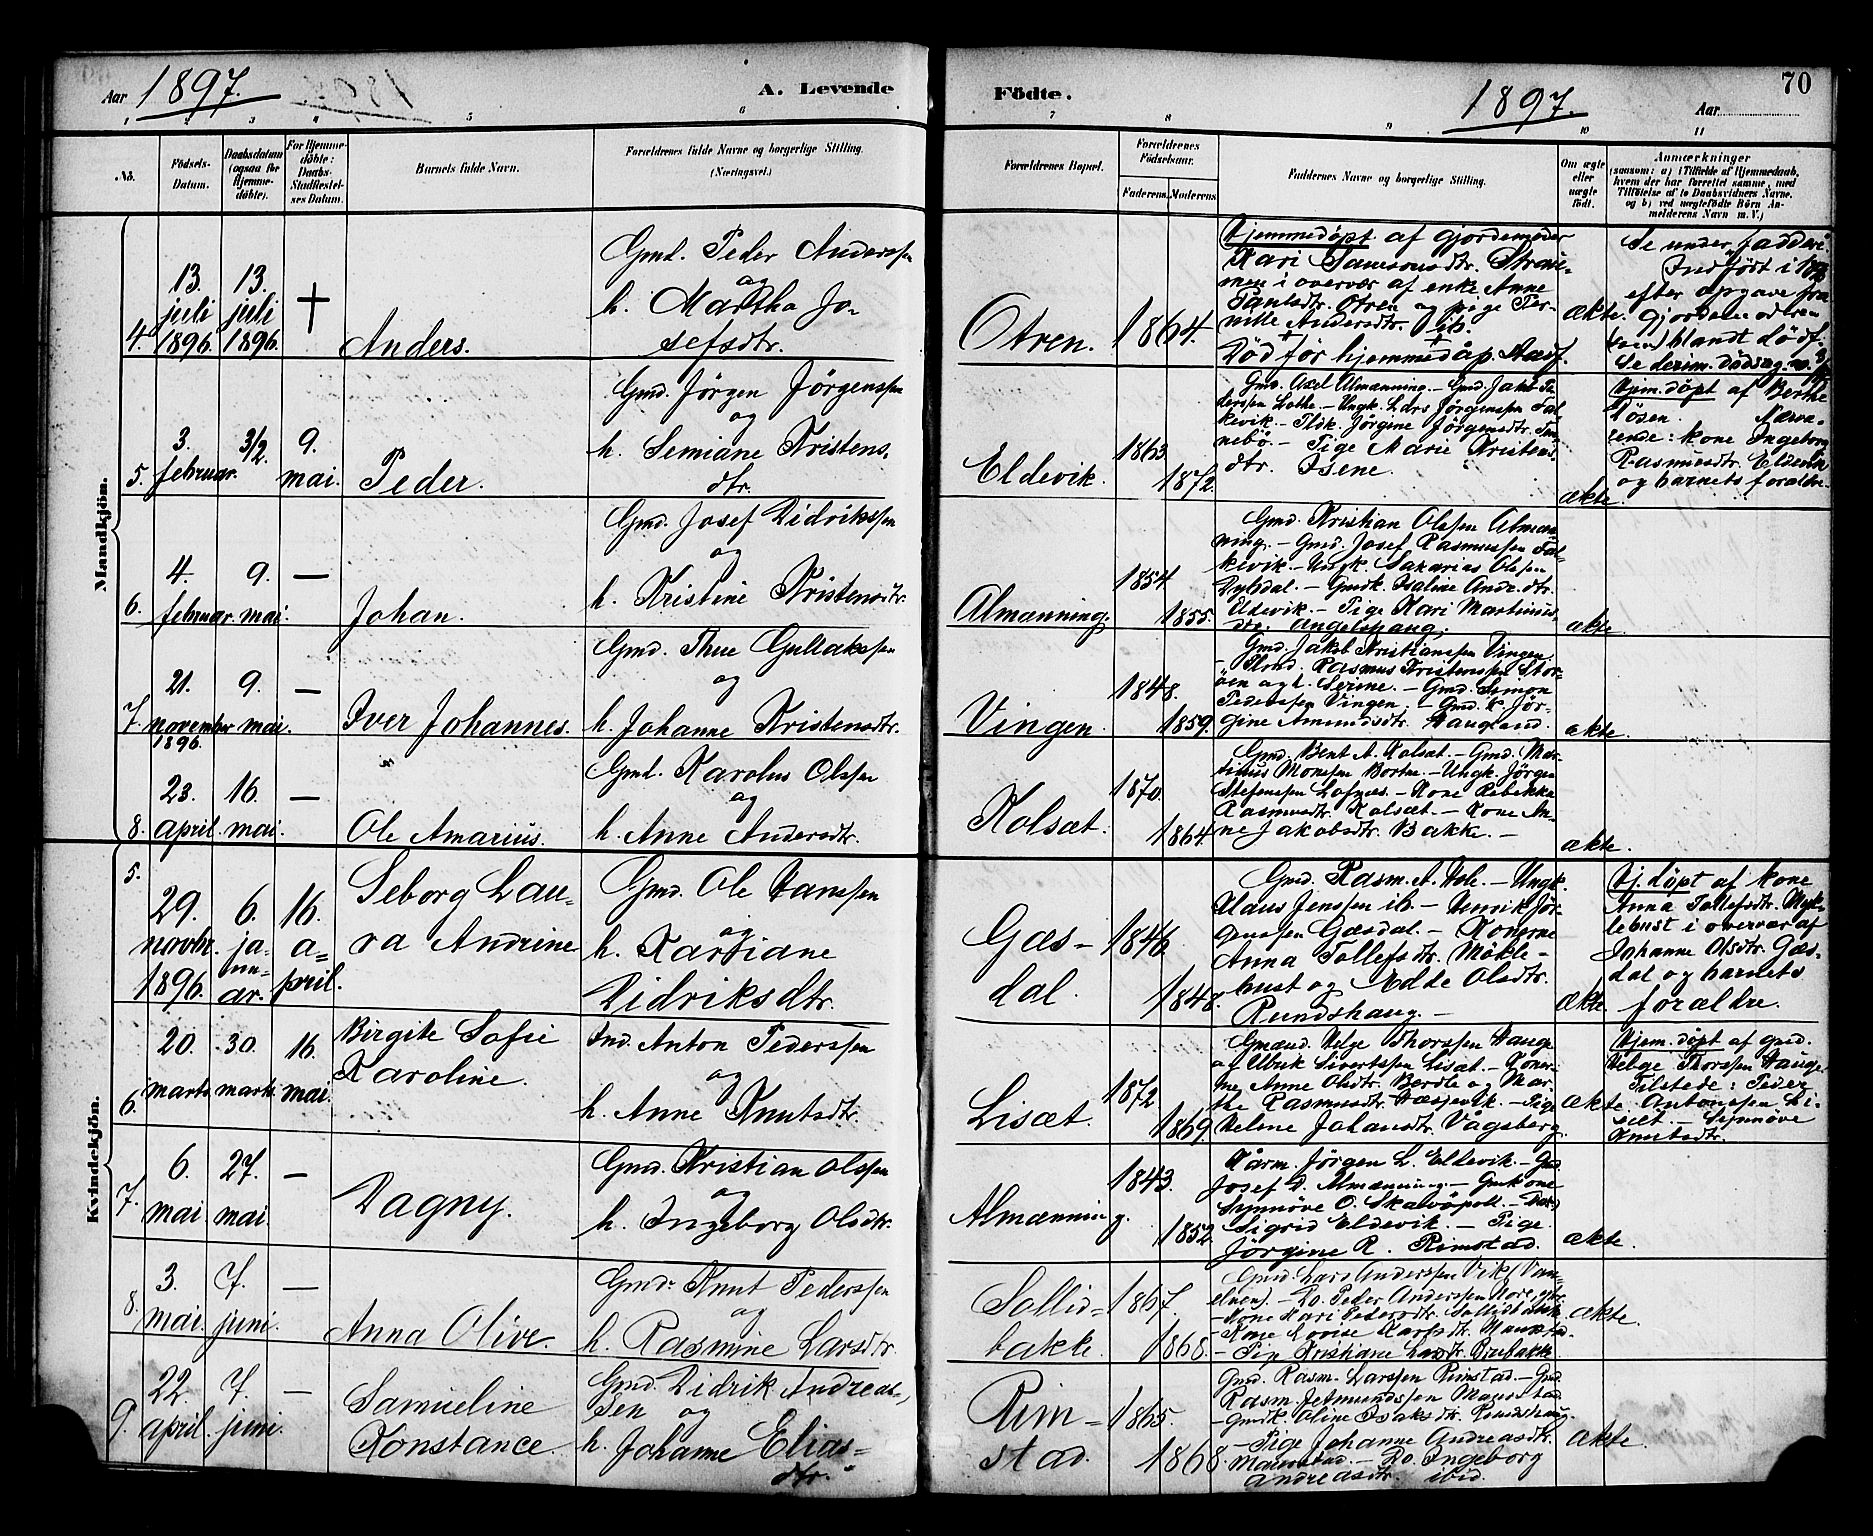 Aar 1897.
A. Levende
Födte.
1897.
Aar
70
1 2 3 4 5 6 7 8 9 10 11
No.
Födsels-
Datum.
Daabsdatum
(ogsaa for
Hjemme-
döbte).
For Hjemme-
döbte:
Daabs-
Stadfæstel-
ses Datum.
Barnets fulde Navn.
Forældrenes fulde Navne og borgerlige Stilling.
(Næringsvei.)
Forældrenes Bopæl.
Forældrenes
Födselsaar.
Faderens.
Moderens.
Faddernes Navne og borgerlige Stilling.
Om ægte
eller
uægte
födt.
Anmærkninger
(saasom: a) i Tilfælde af Hjemmedaab,
hvem der har forrettet samme, med
Tilföielse af to Daabsvidners Navne,
og b) ved uægtefödte Börn An-
melderens Navn m. V.)
Mandkjön.
4.
13.
juli
1896.
13.
juli
1896.
Anders.
Gmd. Peder Anderssen
og
h. Martha Jo-
sefsdtr.
Otren.
1864.
Hjemmedöpt af gjordemoder
Kari Samsonsdtr. Strau-
men i overvær af enke Anne
Otren og pige Per-
nille Andersdtr. ib.
Död för hjemmedåp.
ækte.
Se under faddere
Indfört i
efter opgave fra
gjordem
blandt dödf.
5.
3.
februar.
3/2
9.
mai.
Peder.
Gmd. Jörgen Jörgenssen
og
h. Semiane Kristens-
dtr.
Eldevik.
1863
1872.
Gmd. Axel Almænning. – Gmd. Jakob Pe-
derssen Lothe. – Ungk. Lars Jörgenssen Fal-
kevik. – Jörgine Jörgensdtr. Tin-
nebö. – Pige Marie Kristens-
dtr. Isene.
ækte.
Hjem. döpt af Berthe
Nærvæ-
rende: kone Ingeborg
Rasmusdtr. Eldevik
og barnets forældre.
6.
4.
februar.
9.
mai.
—
Johan.
Gmd. Josef Didrikssen
og
h. Kristine Kristensdtr.
Almænning.
1854
1855.
Gmd. Kristian Olssen Almæn-
ning. – Gmd. Josef Rasmussen Fal-
kevik. – Ungk. Sakarias Olssen
– Gmdk. Andr.dtr.
Eldevik. – Pige Kari Martinus-
dtr. Angelshaug.
ækte.
7.
21.
november
1896.
9.
mai.
—
Iver Johannes.
Gmd. Thue Gullakssen
og
h. Johanne Kristensdtr.
Vingen.
1848.
1859.
Gmd. Jakob Kristianssen Vingen.
– Rasmus Kristenssen Stor-
öen og h. Serine. – Gmd. Simon
Pederssen Vingen. – Gmd. k. Jör-
gine Amundsdtr. Haugland.
ækte.
8.
23.
april.
16.
mai.
—
Ole Amarius.
Gmd. Karolus Olssen
og
h. Anne Andersdtr.
Kolsæt.
1870.
1864.
Gmd. Bent A. Kolsæt. – Gmd. Mar-
tinus Monssen Bortne. – Ungk. Jörgen
Stefenssen Lofnæs. – Kone Rebekka
Rasmusdtr. Kolsæt. – Kone An-
ne Jakobsdtr. Bakke. –
ækte.
Kvindekjön.
5.
29.
novbr.
1896.
6.
ja-
nu-
ar.
16.
a-
pril.
Seborg Lau-
ra Andrine
Gmd. Ole Hanssen
og
h. Karsiane
Didriksdtr.
Gæs-
dal.
1846.
1848.
Gmd. Rasm. A. Hole. – Ungk.
Klaus Jenssen ib. – Henrik Jör-
genssen Gæsdal. – Konerne
Anna Tollefsdtr. Mökle-
bust og Olsdtr.
Rundshaug. –
ækte.
Hj. döpt af kone
Anna Tollefsdtr. Myk-
lebust i overvær af
Johanne Olsdtr. Gæs-
dal og barnets
forældre.
6.
20.
marts
30.
marts.
16.
mai.
Birgite Sofie
Karoline.
Ind. Anton Pederssen
og
h. Anne Knutsdtr.
Lisæt.
1872.
1869.
Gmænd. Helge Thorssen Hauge
og Ulrik Sivertssen Lisæt. – Koner-
ne Anne Olsdtr. Berdle og Mar-
the Rasmusdtr. – Pige
Helene Johansdtr. Vågsberg.
ækte.
Hjem. döpt af gmd.
Helge Thorssen Hauge.
Tilstede: Peder
Antonssen Li-
sæt. – Synnöve
Knutsdtr.
7.
6.
mai.
27.
mai.
—
Dagny.
Gmd. Kristian Olssen
og
h. Ingeborg Olsdtr.
Almænning.
1843.
1852.
Kårm. Jörgen L. Eldevik. – Gmd.
Josef D. Almænning. – Gmkone
Synnöve O. Skalvöpoll. –
Sigrid Eldevik. – Pige
Jörgine R. Rimstad.
ækte.
8.
3.
mai.
7.
juni.
—
Anna Olive.
Gmd. Knut Pederssen
og
h. Rasmine Larsdtr.
Sollid-
bakke.
1867.
1868.
Gmd. Lars Anderssen Vik
– Do. Peder Anderssen
– Kone Kari Pedersdtr. Sollidbakk.
– Kone Lovise
– Pige Kristiane Larsdtr.
ækte.
9.
22.
april.
7.
juni.
—
Samueline
Konstance.
Gmd. Didrik Andreas-
sen og
h. Johanne Elias-
dtr.
Rim-
stad.
1865.
1868.
Gmd. Rasm. Larssen Rimstad. – Gmd.
Rasm.
– Gmdk. Oline Isaksdtr. Rundshaug.
– Pige Johanne Andreasdtr.
– Do. Ingeborg
Andreasdtr. ibid.
ækte.